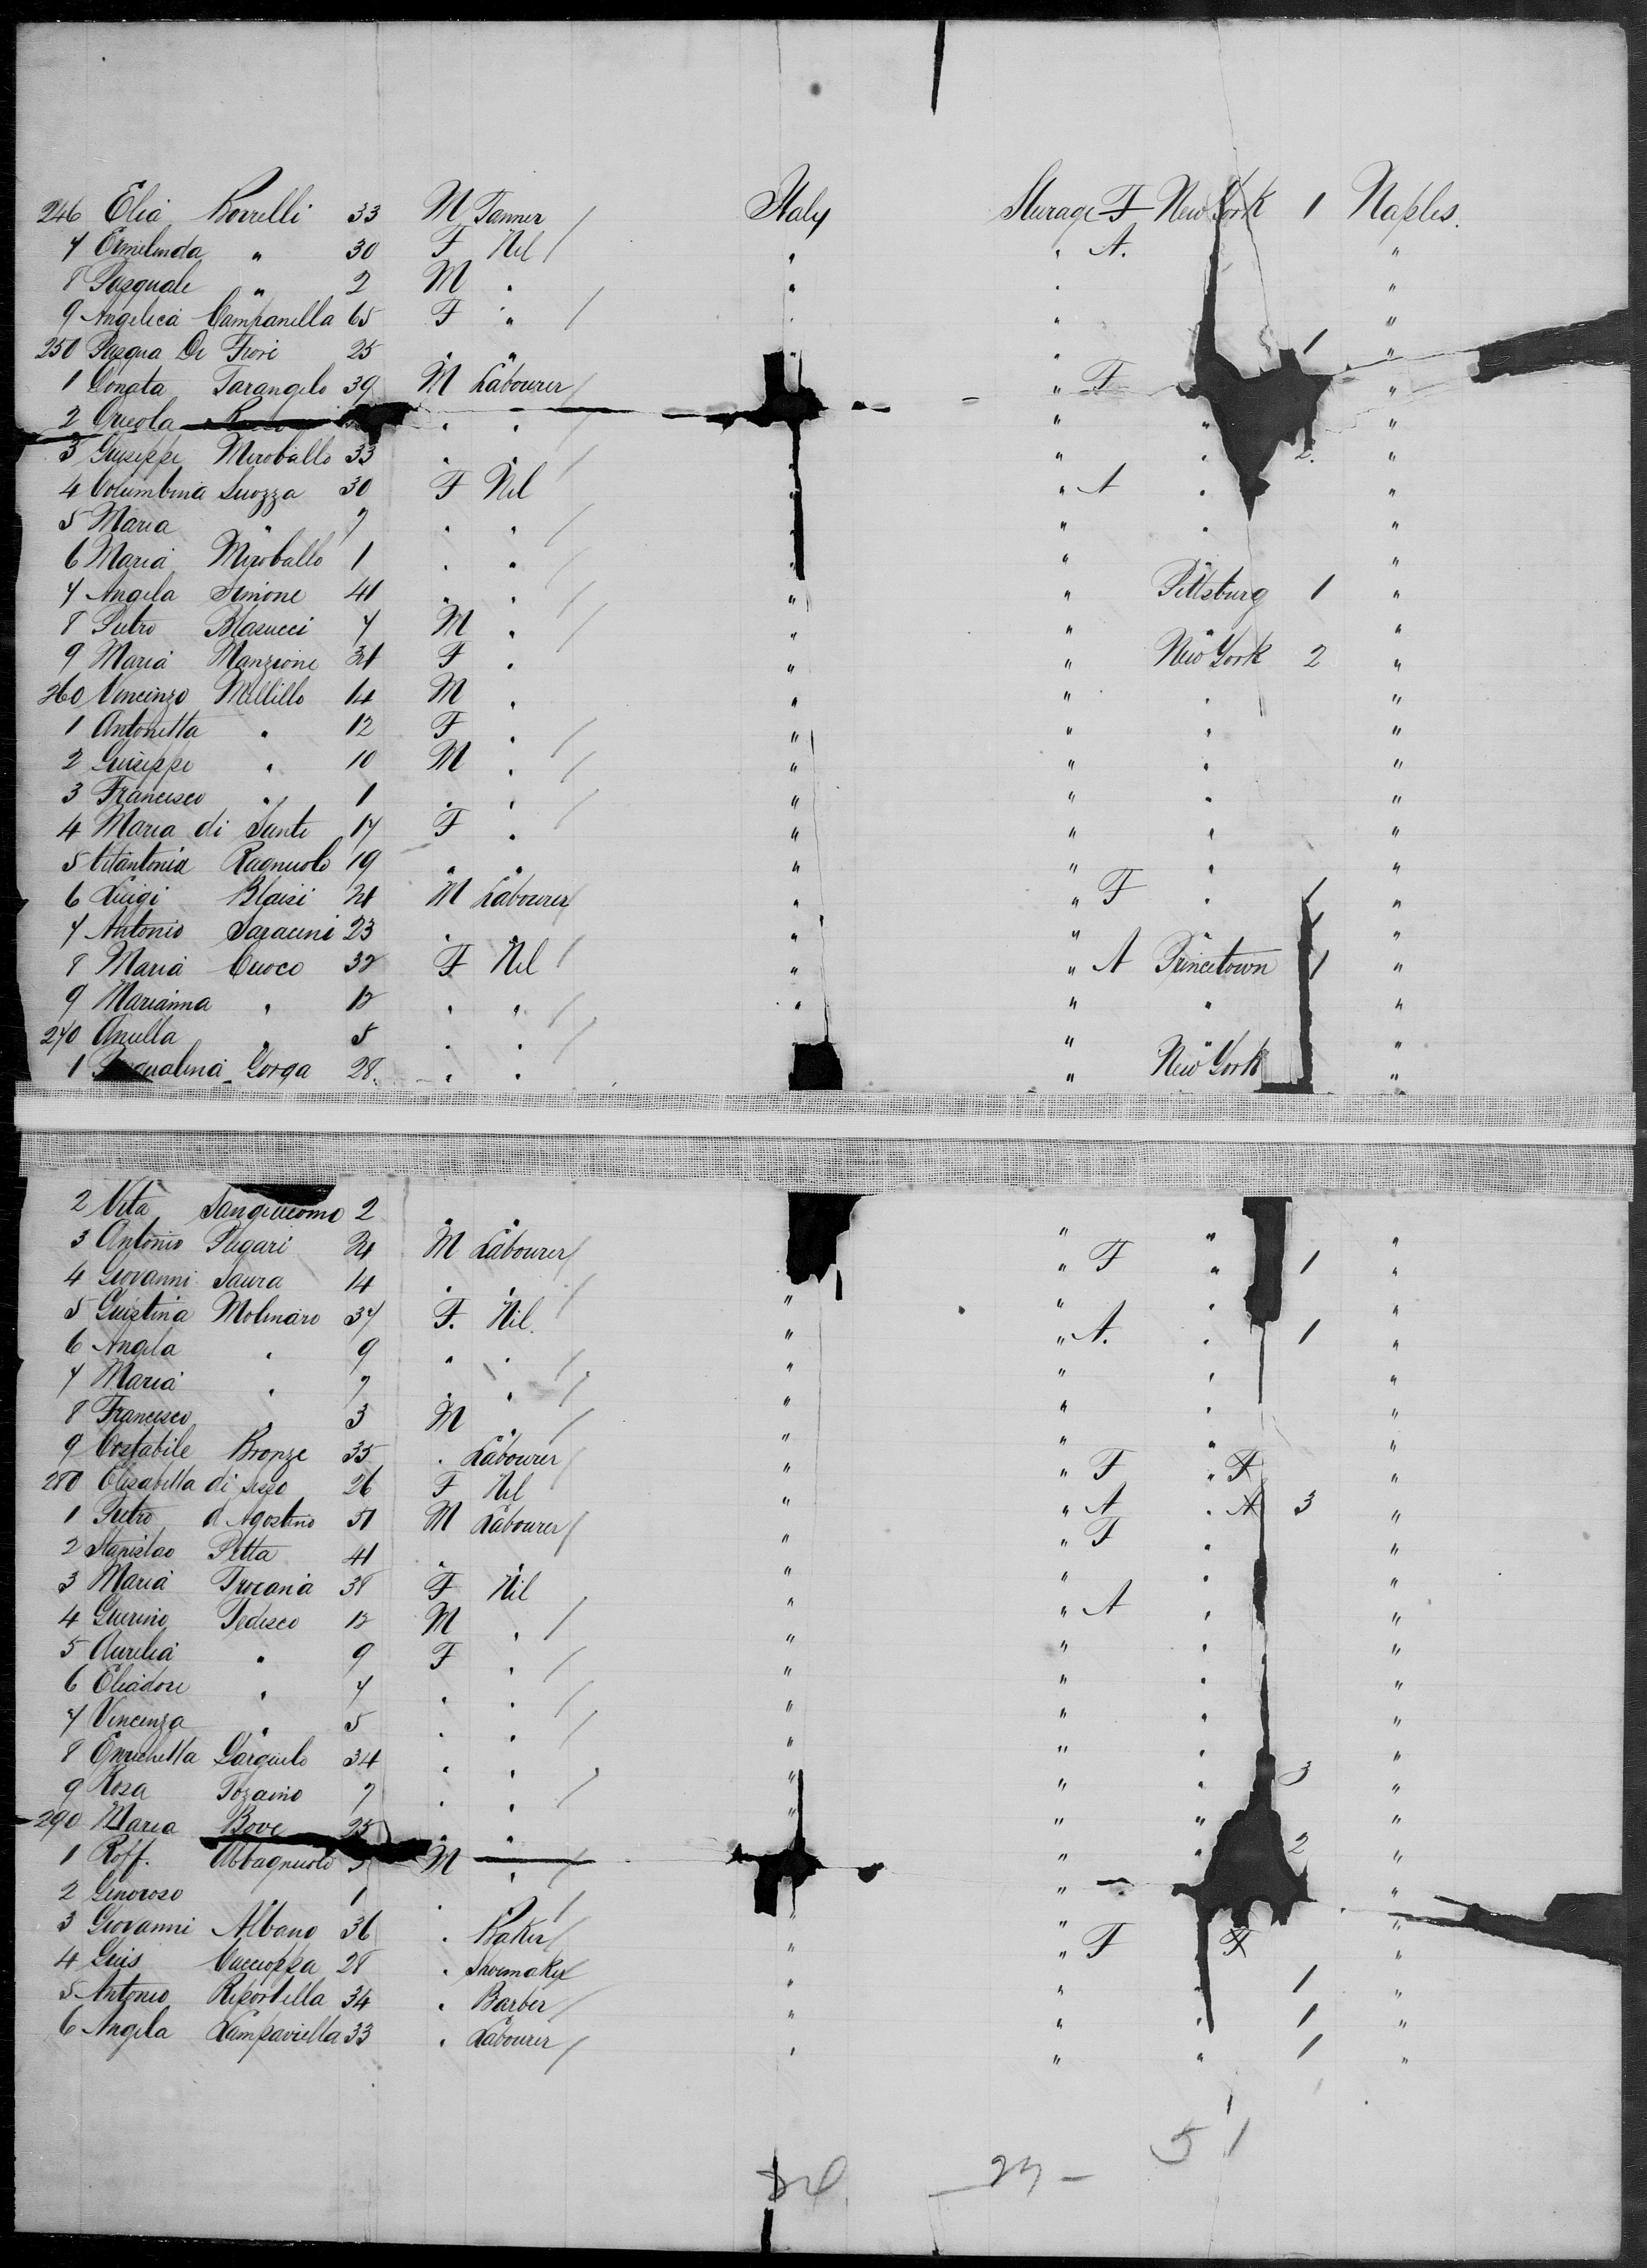 246 Elia Borrelli 33 M Tanner / Italy Sturage F New York 1 Naples.
7 Ermelinda " 30 F Nil / " " A. "
8 Pasquale " 2 M " " " "
9 Angelica Campanella 65 F " / " " "
250 Pasqua De Fiori 25 " " " " 1 "
1 Donata Tarangelo 39 M Labourer / " F "
2 " " / " " "
3 Giuseppe Miroballo 33 " " / " " " 2. "
4 Columbina Suozza 30 F Nil / " " A " "
5 Maria " 7 " " / " " " "
6 Maria Miroballo 1 " " / " " " "
7 Angela Simone 41 " " / " " Pittsburg 1 "
8 Pietro Blasucci 7 M " / " " " "
9 Maria Manzione 31 F " " " New York 2 "
260 Vincenzo Mellillo 14 M " " " " "
1 Antonetta " 12 F " / " " " "
2 Guiseppe " 10 M " / " " " "
3 Francesco " 1 " " / " " " "
4 Maria di Santi 17 F " " " " "
5 Vitantonia Ragnuolo 19 " " " " " "
6 Luigi Blaisi 24 M Labourer / " " F " 1 "
7 Antonio Saracini 23 " " " " " 1 "
8 Maria Cuoco 32 F Nil / " " A Princetown 1 "
9 Marianna " 12 " " / " " " "
270 Anulla " 5 " " / " " "
1 Gorga 28. " " " New York "
2 Vita Sangiacomo 2 " " " " "
3 Antonio Pligari 24 M Labourer / " F " 1 "
4 Giovanni Saura 14 " " / " " " "
5 Guistina Molinaro 37 F. Nil. " " A. " 1 "
6 Angela " 9 " " / " " " "
7 Maria " 7 " " / " " " "
8 Francesco " 3 M " / " " " "
9 Costabile Bronze 35 " Labourer / " " F " F "
280 Elisabetta di 26 F Nil " " A " A 3 "
1 Pietro d'Agostino 51 M Labourer / " " F " "
2 Stanislao Petta 41 " " " " " "
3 Maria Trocania 38 F Nil " " A " "
4 Guerino Tedesco 12 M " / " " " "
5 Aurelia " 9 F " / " " " "
6 Eliadore " 7 " " / " " " "
7 Vincenza " 5 " " / " " " "
8 Enrichetta Gargiulo 34 " " " " " 3 "
9 Rosa Tozaino 7 " " / " " " "
290 Maria Bove 25 " " " " " 2 "
1 Roff. Abbagnuolo M " / " "
2 Generoso " 1 " " / " " "
3 Giovanni Albano 36 " Baker / " " F F "
4 Luis Caccioppa 28 " Shoemaker / " " " 1 "
5 Antonio Riportella 34 " Barber / " " " 1 "
6 Angela Campaviella 33 " Labourer / " " " 1 "
51